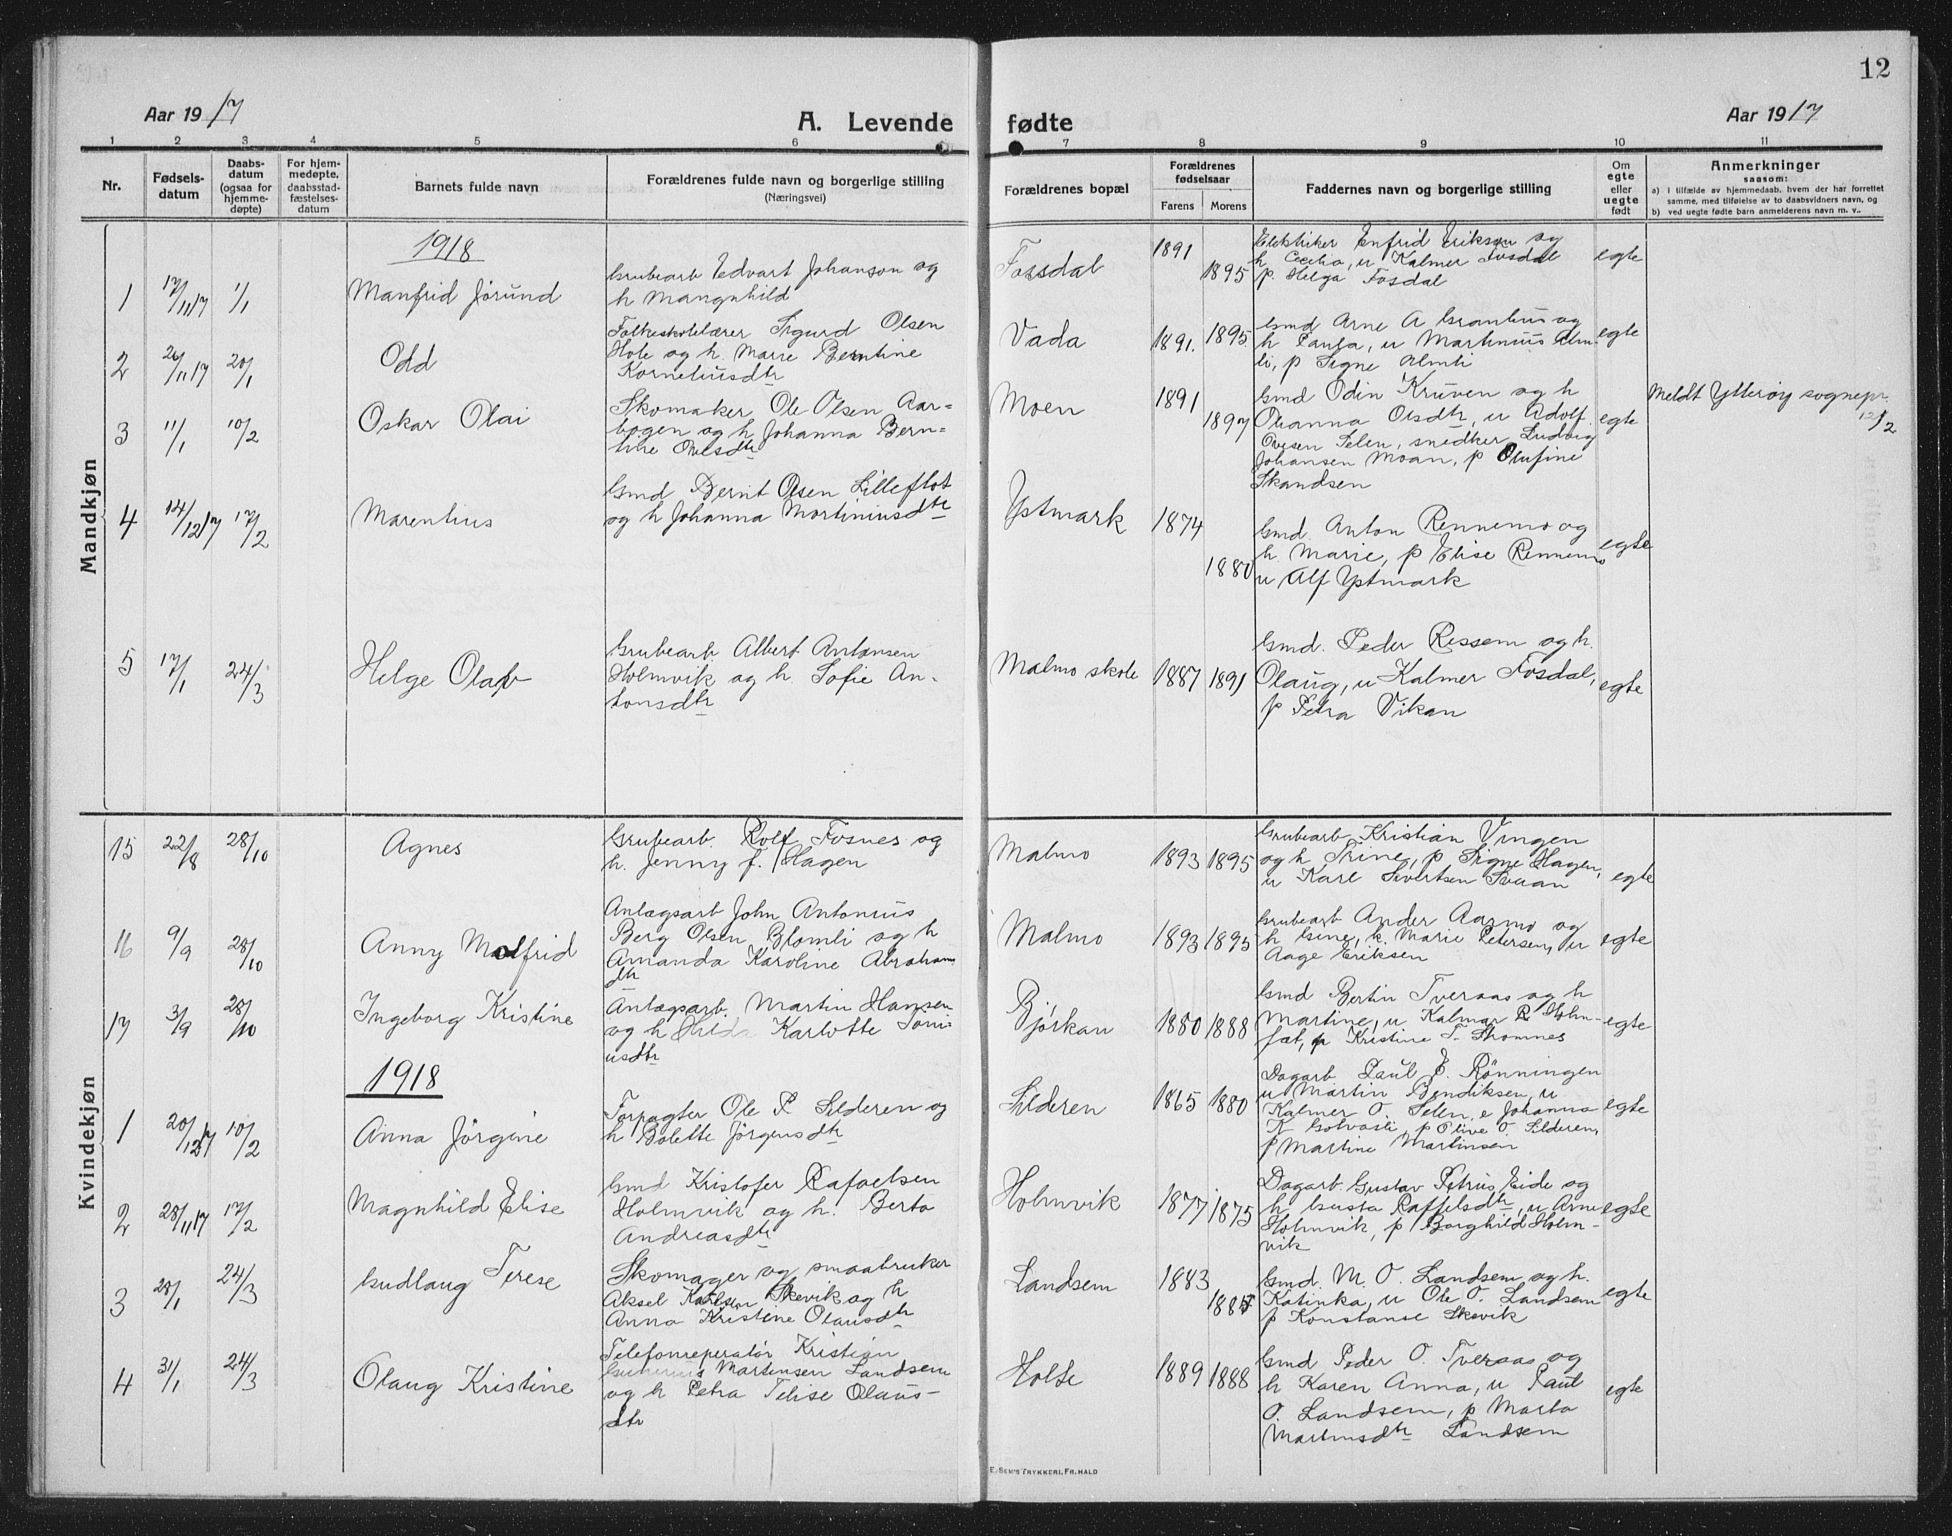 12
Aar 1917
A. Levende fødte
Aar 1917
1 2 3 4 5 6 7 8 9 10 11
Nr.
Fødsels-
datum
Daabs-
datum
(ogsaa for
hjemme-
døpte)
For hjem-
medøpte,
daabsstad-
fæstelses-
datum
Barnets fulde navn
Forældrenes fulde navn og borgerlige stilling
(Næringsvei)
Forældrenes bopæl
Forældrenes
fødselsaar
Farens Morens
Faddernes navn og borgerlige stilling
Om
egte
eller
uegte
født
Anmerkninger
saasom:
a) i tilfælde av hjemmedaab, hvem der har forrettet
samme, med tilføielse av to daabsvidners navn, og
b) ved uegte fødte barn anmelderens navn m. v..
Mandkjøn
1918
1 17/11 17 1/1
Manfrid Jørund
Grubearb Edvart Johanson og
h Mangnhild
Fossdal
1891 1895
Elektriker Enfrid Erikson og
h Cecilia, u Kalmer Fosdal
p. Helga Fosdal
egte
2 26/11 17 20/1
Odd
Folkeskolelærer Sigurd Olsen
Hole og h. Marie Berntine
Korneliusdtr
Vada
1891. 1895
Gmd Arne A Granhus og
h Paula, u Martinius Alm-
li, p Signe Almli
egte
3 11/1 10/2
Oskar Olai
Skomaker Ole Olsen Aar-
bogen og h Johanna Bern-
tine Ovesdtr
Moen
1891 1897
Gmd Odin Kruven og h
Olianna Olsdtr, u Adolf
Ovesen Selen, snedker Ludvig
Johansen Moan, p Olufine
Skandsen
egte
Meldt Ytterøy sognepr.
12/2
4 14/12 17 17/2
Marentius
Gmd Bernt Olsen Lilleflot
og h Johanna Martiniusdtr
Ystmark
1874 1880
Gmd. Anton Rennemo og
h. Marie, p Elise Rennemo
u Alf Ystmark
egte
5 17/1 24/3
Helge Olav
Grubearb. Albert Antonsen
Holmvik og h. Sofie An-
tonsdtr
Malmo skole
1887 1891
Gmd. Peder Ressem og h.
Olaug, u Kalmer Fosdal,
p Petra Vikan
egte
Kvindekjøn
15 22/8 28/10
Agnes
Grubearb. Rolf Fosnes og
h. Jenny f. Hagen
Malmo
1893 1895
Grubearb Kristian Vingen
og h Trine, p Signe Hagen,
u Karl Sivertsen Sveaan
egte
16 9/9 28/10
Anny Malfrid
Anlægsarb John Antonius
Berg Olsen Blomli og h
Amanda Karoline Abrahams
dtr
Malmo
1893 1895
Grubearb Ander Aarmo og
h Gine, k. Marie Petersen, u
Aage Eriksen
egte
17 3/9 28/10
Ingeborg Kristine
Anlægsarb. Martin Hansen
og h Hilda Karlotte Toni-
usdtr
Bjørkan
1880 1888
Gmd Bertin Tveraas og h
Martine, u Kalmar R Holm-
fæt, p Kristine T. Stromnes
egte
1918
1 20/12 17 10/2
Anna Jørgine
Forpagter Ole P. Selderen og
h Bolette Jørgensdtr
Silderen
1865 1880
Dagarb Paul E. Rønningen
u Martin Bendiksen, u
Kalmer O. Selen, e Johanna
K Golvasli, p Olive O. Silderen,
p Martine Martinsen
egte
2 28/11 17 17/2
Magnhild Elise
Gmd Kristofer Rafaelsen
Holmvik og h. Berta
Andreasdtr
Holmvik
1877 1875
Dagarb. Gustav Petrus Eide og
h Gusta Raffelsdtr, u Arne
Holmvik, p Borghild Holm-
vik
egte
3 28/1 24/3
Gudlaug Terese
Skomager og smaabruker
Aksel Karlsen Skevik og h
Anna Kristine Olausdtr
Landsem
1883
Gmd. M. O. Landsem og h.
Katinka, u Ole O. Landsem
p Konstanse Skevik
egte
4 31/1 24/3
Olaug Kristine
Telefonreperatør Kristian
Martensen Landsem
og h Petra Telise Olaus-
dtr
Holte
1889 1888
Gmd Peder O. Tveraas og
h Karen Anna, u Paul
O. Landsem, p Marta
Martinsdtr Landsem
egte
E. Sem's Trykkeri, Fr.hald